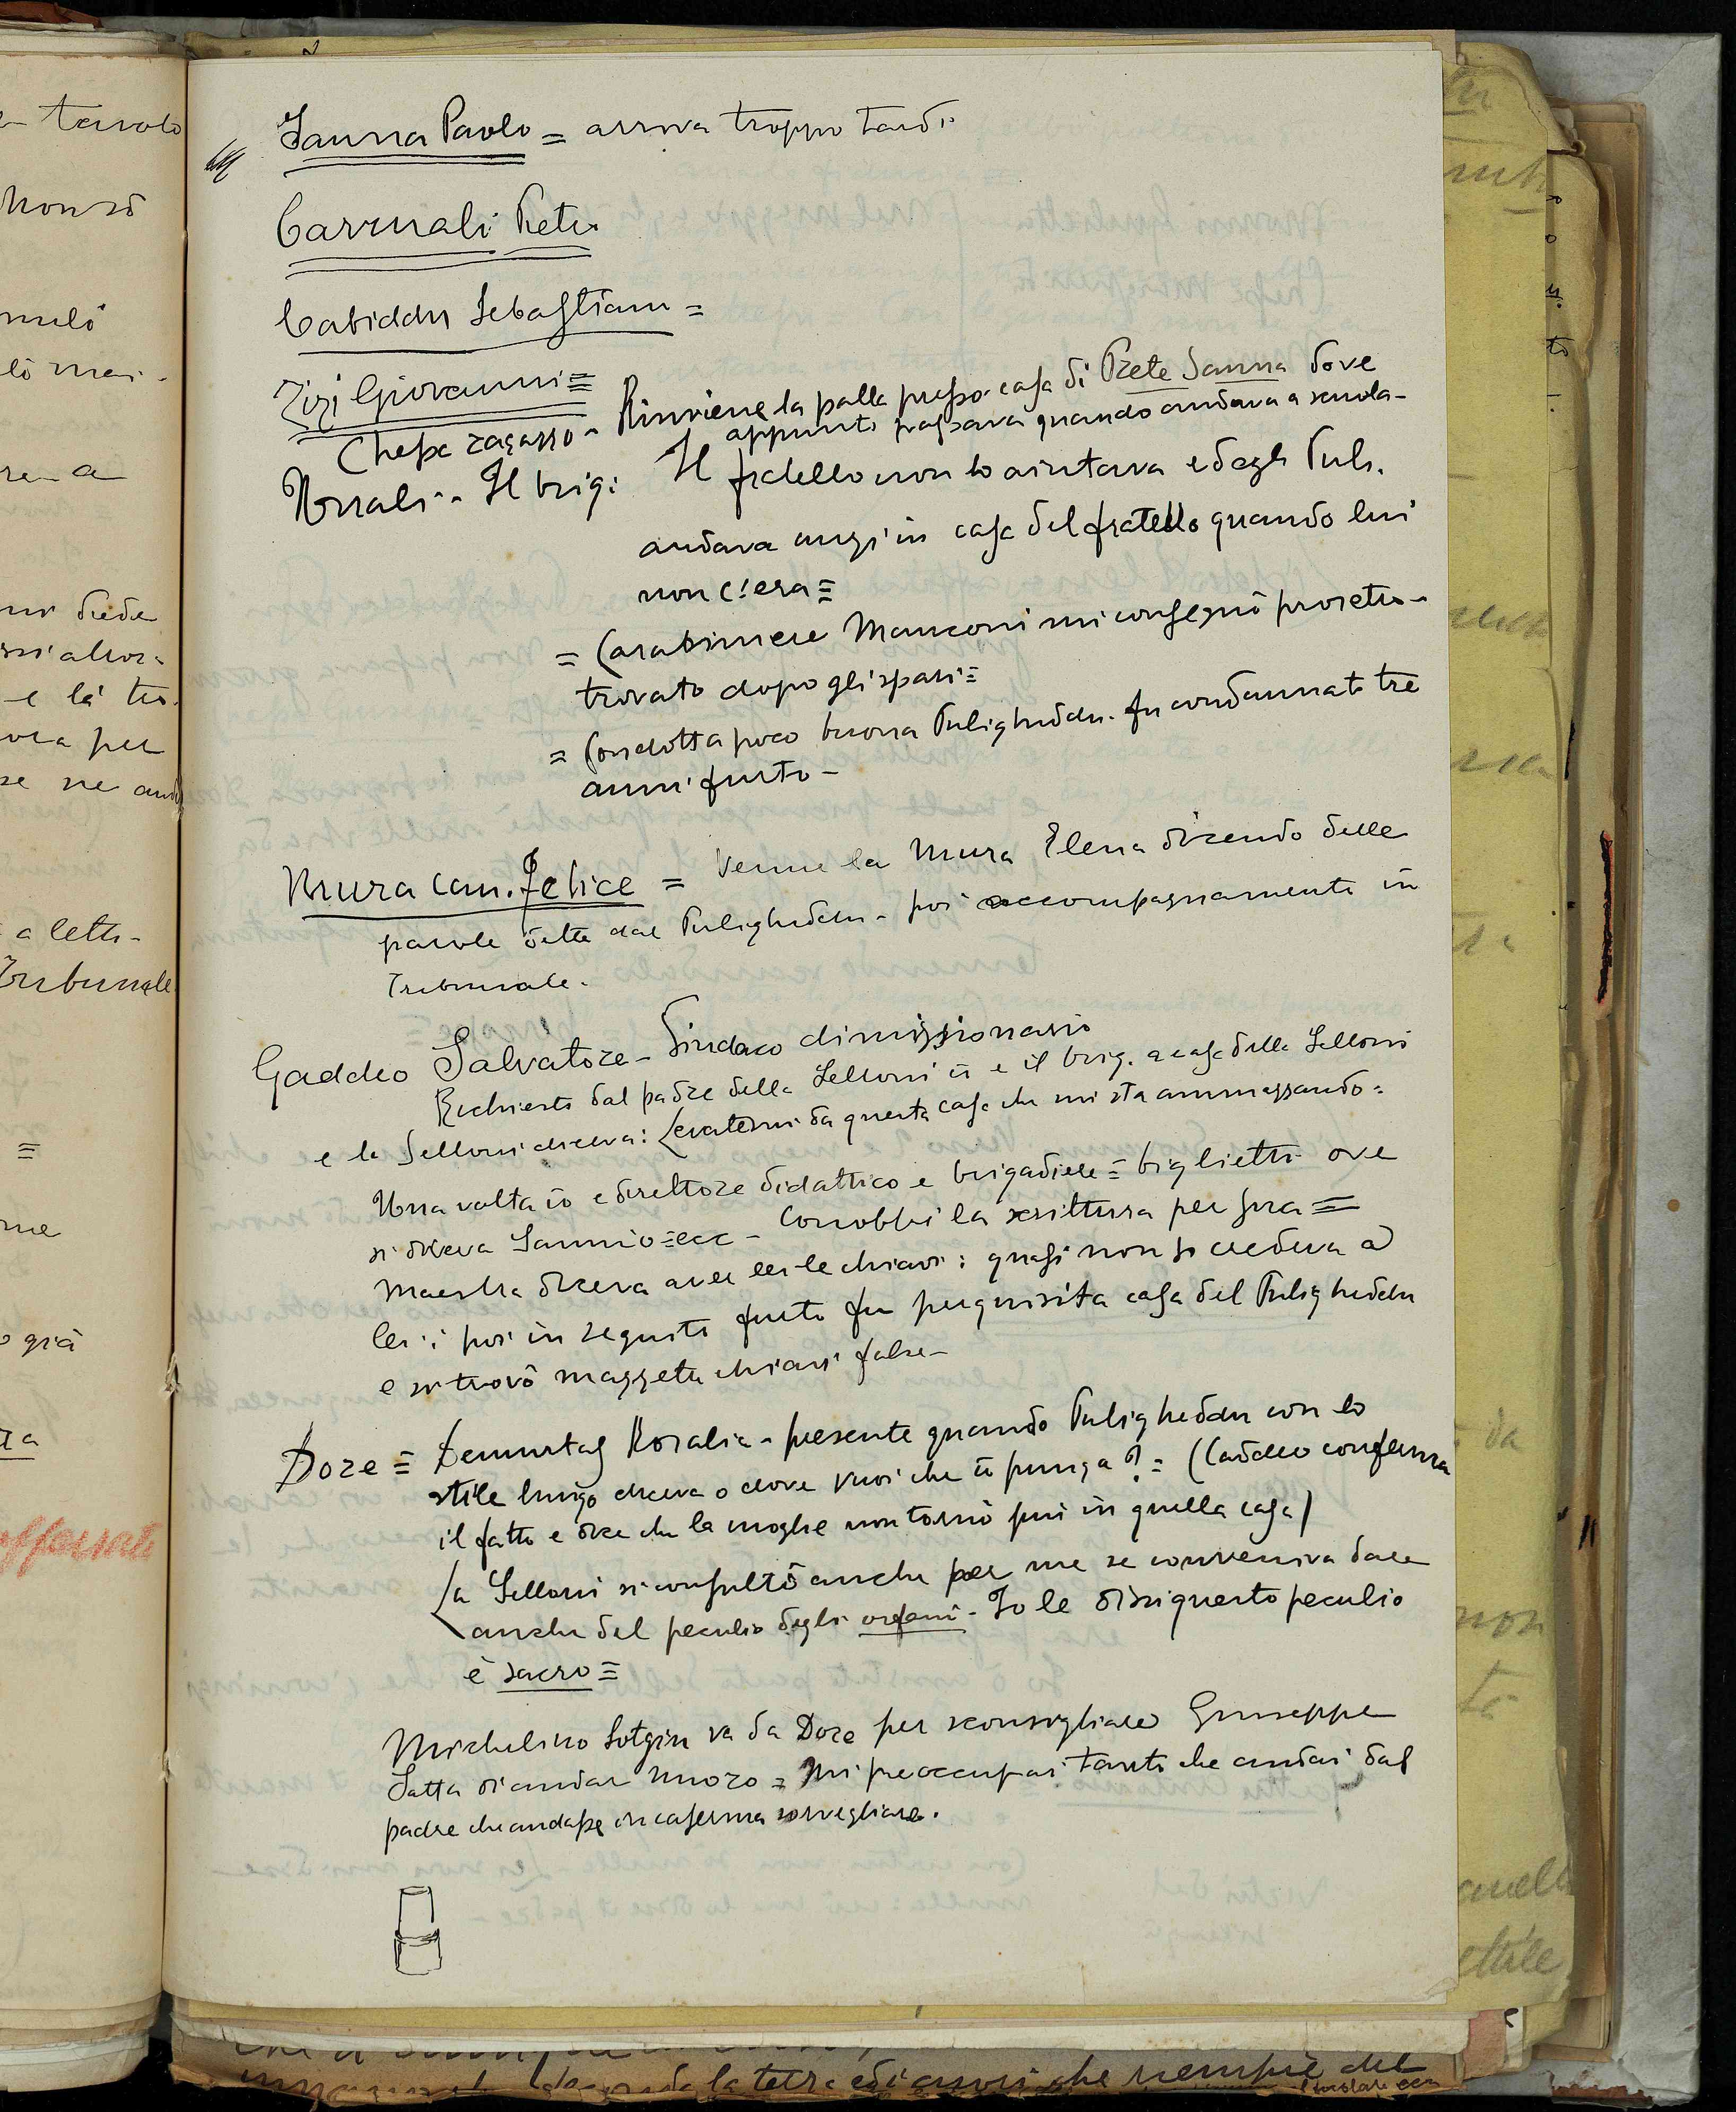 Sanna Paolo = arriva troppo tardi
Carmali Pietro
Cabiddu Sebastiano =
Zizi Giovanni =
Chepe ragazzo - Rinviene la palla presso casa di Prete Sanna dove
appunto passava quando andava a scuola -
Il brig: Il fratello non lo aiutava e dagli Puli.
andava anzi in casa del fratello quando lui
non c'era =
= Carabiniere Manconi mi consegnò proietto -
trovato dopo gli spari =
= Condotta poco buona Pulighddu. fu condannato tre
anni furto -
Mura Can. Felice = Venne la Mura Elena dicendo delle
parole dette dal Pulighddu - poi accompagnamento in
Tribunale.
Gaddeo Salvatore - Sindaco dimissionario
Richiesti dal padre della Selloni io e il brig. a casa della Selloni
e la Selloni diceva: Levatemi da questa casa che mi sta ammazzando =
Una volta io e direttore didattico e brigadiere = biglietti ove
si diceva Sannio = ecc - Conobbi la scrittura per sua =
Maestra diceva aver lei le chiavi: quasi non si credeva a
lei: poi in seguito furto fu perquisita casa del Pulighddu
e si trovò mazzetto chiavi false -
Doze = Demurtas Rosalia - presente quando Pulighddu con lo
stile lungo diceva o dove vuoi che ti punga? = (Caddeo conferma
il fatto e dice che la moglie non tornò più in quella casa)
La Selloni si consultò anche per me se conveniva dare
anche del peculio degli orfani - Io le dissi questo peculio
è sacro =
Michelino Sotgiu va da Doze per sconsigliare Giuseppe
Satta di andar Nuoro = Mi preoccupai tanto che andai dal
padre che andasse in caserma sorvegliare.